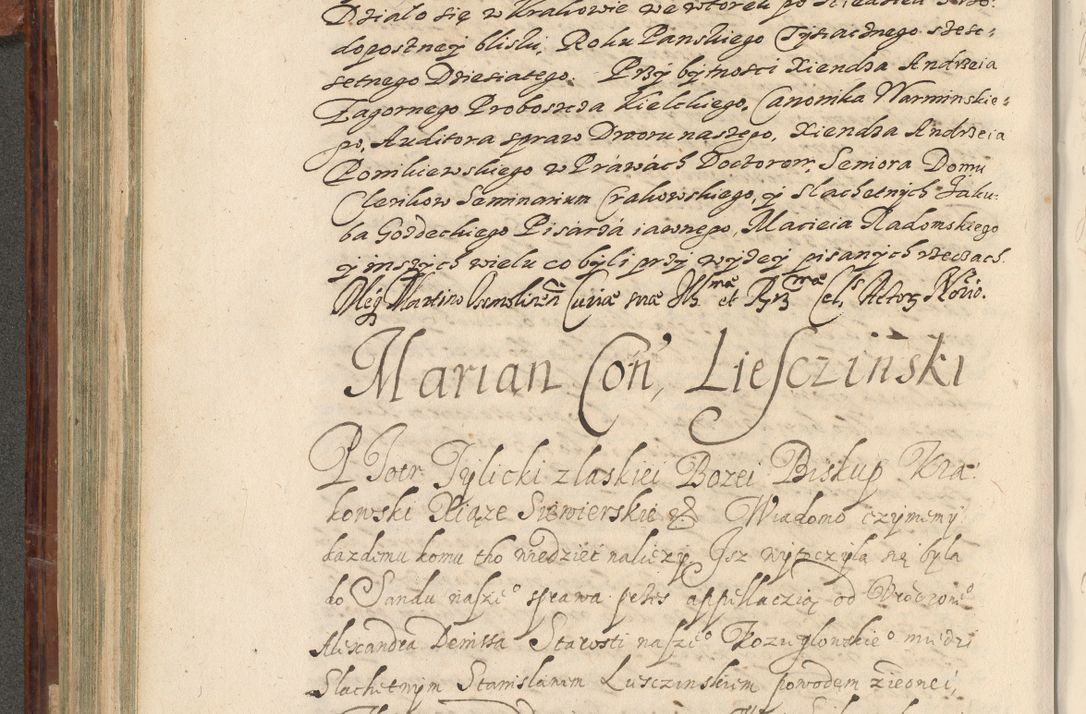 Działo się w Krakowie we wtorek po Niedzieli Srzo:
dopostnej bliski, Roku Panskiego Tysiacznego szesc-
setnego Dziesiatego. Przy bytnosci Xiendza Andrzeia
Zagornego Proboszcza Kielckiego, Canonika Warminskie-
go, Auditora spraw Dworu naszego, Xiendza Andrzeia
w Práwách Doctorow, Seniora Domu
Clerikow Seminarium Crakowskiego, y slachetnych Jaku-
ba Gozdeckiego Pisarza iawnego, Macieia Radomskiego
y inszych wielu co byli przy wyzey pisanych rzeczach.
Martino Curiæ suæ et Nōrio.
Marian Con, Liesczinski
Piotr Tylicki z laskiei Bozei Biskup Kra-
kowski Xiąze Siewierskie etc. Wiadomo czynimy
kazdemu komu tho wiedziec nalezy Isz wytoczyla się byla
do Sandu nasze° sprawa przes appellaczią od Vrodzone°
Alexandra Denissa Starosti nasze° Kozuglowskie° miedzi
Slachetnym Stanislawem Lusczinskiem powodem ziednei,